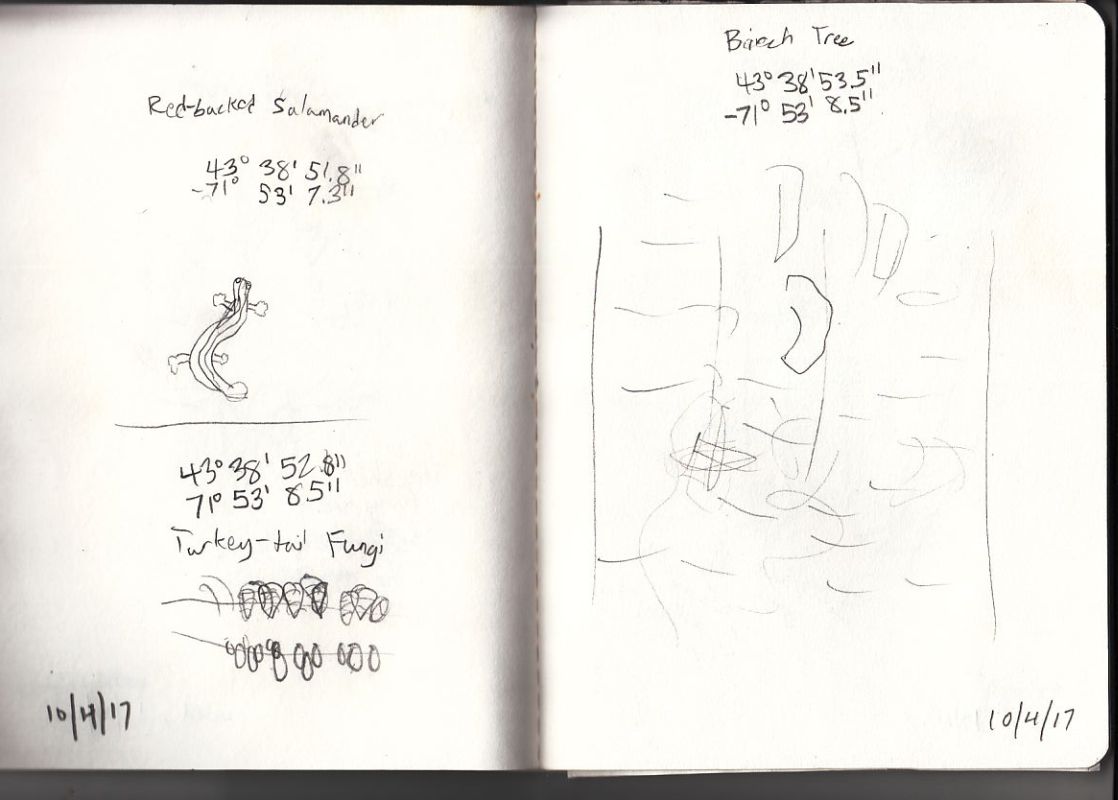 Red-backed Salamander
43° 38' 51.8"
-71° 53' 7.3"
43° 38' 52.8"
71° 53' 8.5"
Turkey-tail Fungi
10/4/17
Birch Tree
43° 38' 53.5"
-71° 53' 8.5"
10/4/17